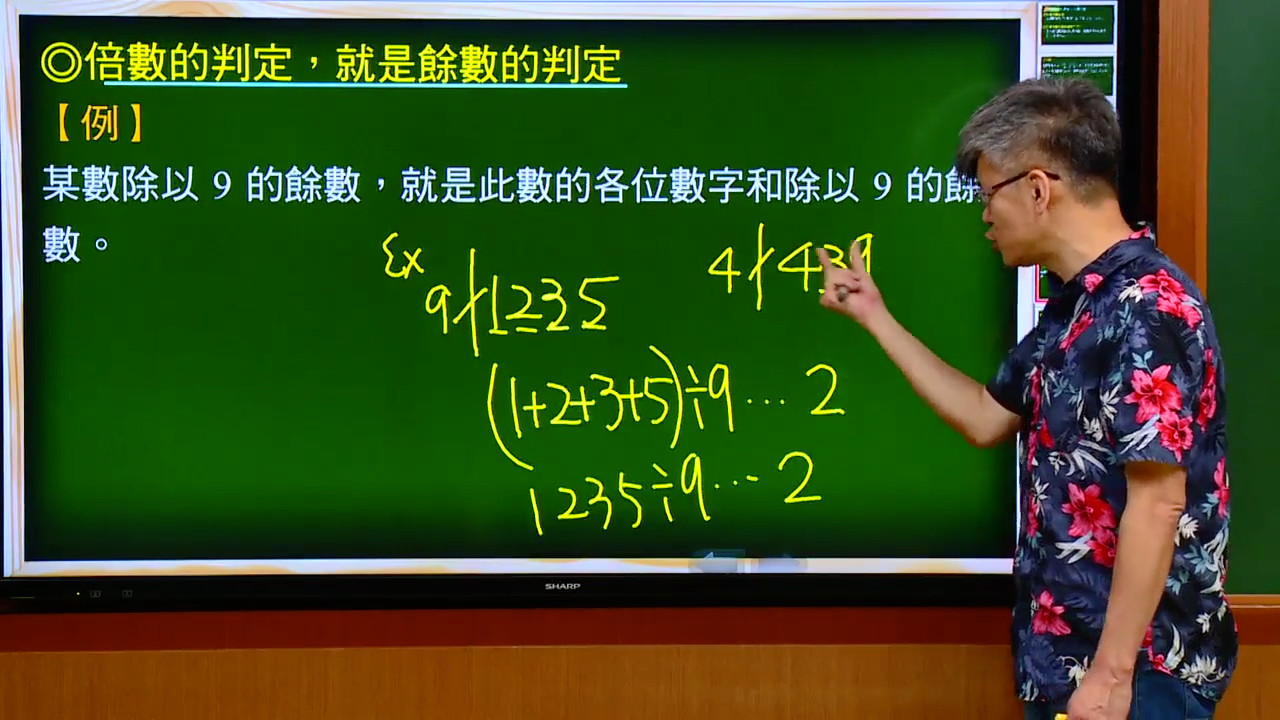 ◎倍數的判定，就是餘數的判定
【例】
某數除以 9 的餘數，就是此數的各位數字和除以 9 的餘
數。
Ex
9∤1235
4∤439
(1+2+3+5)÷9 … 2
1235÷9 … 2
SHARP